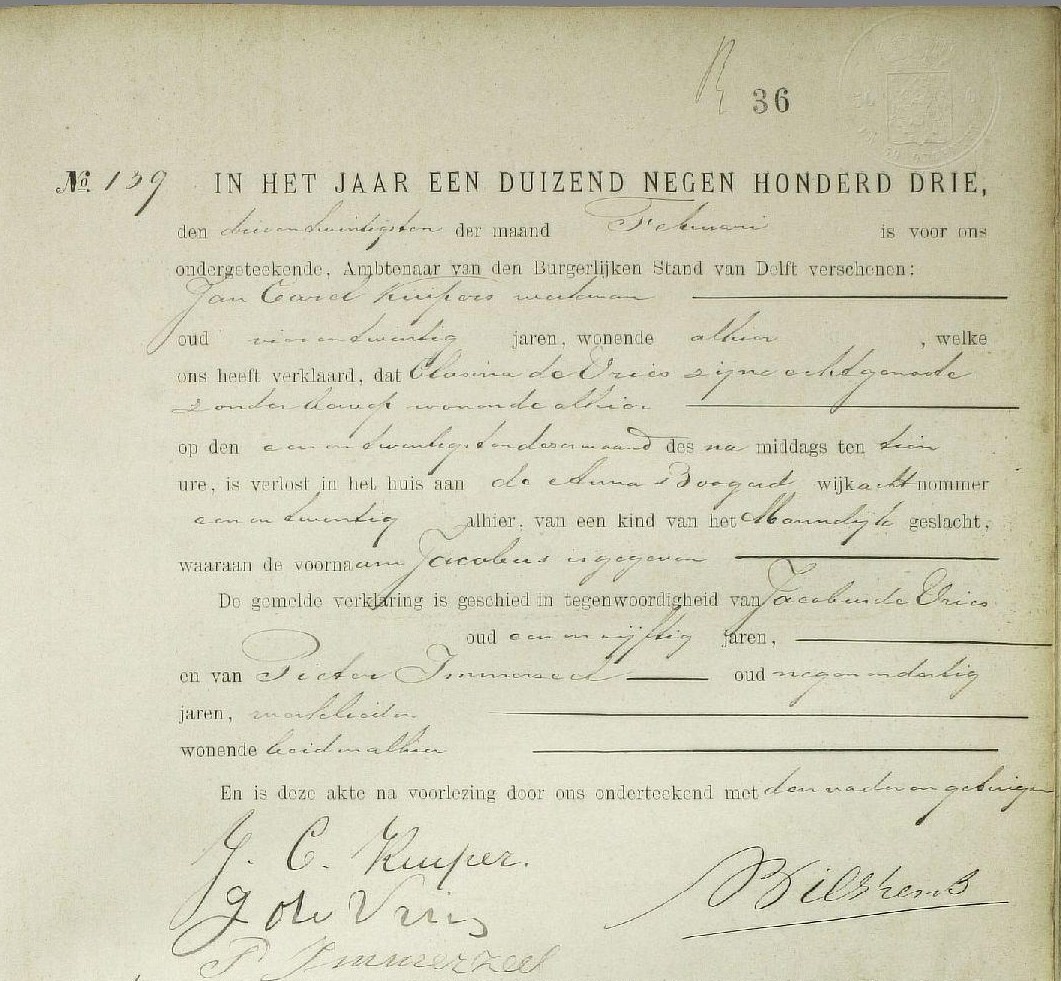 36
No. 139 IN HET JAAR EEN DUIZEND NEGEN HONDERD DRIE,
den drieentwintigsten der maand Februari is voor ons
ondergeteekende, Ambtenaar van den Burgerlijken Stand van Delft verschenen:
Jan Carel Kuipers werkman
oud vierentwintig jaren, wonende alhier , welke
ons heeft verklaard, dat Clasina de Vries zijne echtgenoote
zonder beroep wonende alhier
op den eenentwintigsten dezer maand des na middags ten tien
ure, is verlost in het huis aan de Anna Boogerd wijk acht nommer
eenentwintig alhier, van een kind van het Mannelijk geslacht,
waaraan de voornaam Jacobus is gegeven
De gemelde verklaring is geschied in tegenwoordigheid van Jacobus de Vries
oud eenenvijftig jaren,
en van Pieter Immerzeel oud negenendertig
jaren, werklieden
wonende beiden alhier
En is deze akte na voorlezing door ons onderteekend met den vader en getuigen
J. C. Kuiper.
J de Vries
P Immerzeel